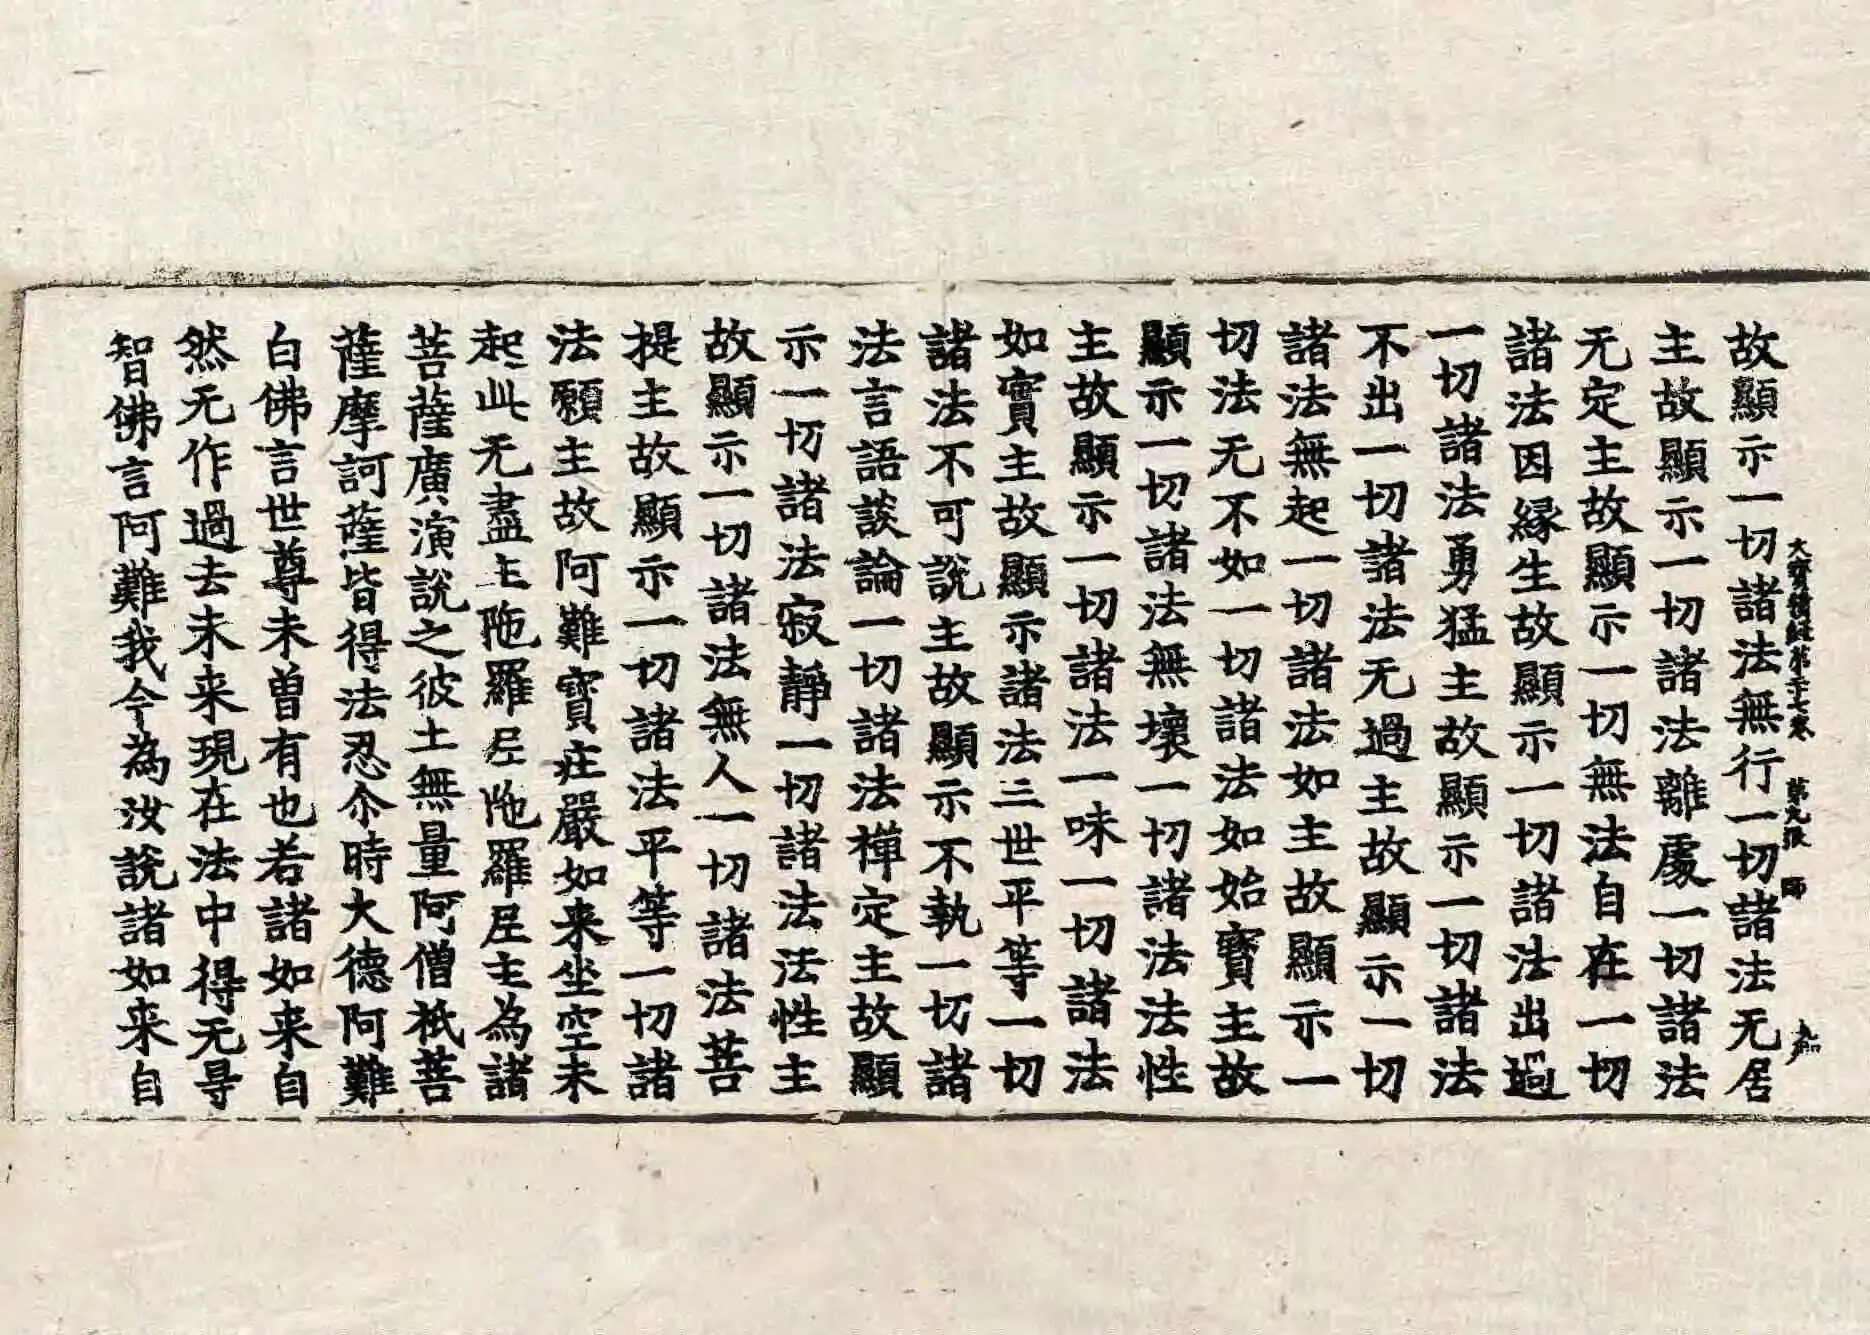 大寶積經第二十七卷 第九張 師
故顯示一切諸法無行一切諸法无居
主故顯示一切諸法離處一切諸法
无定主故顯示一切無法自在一切
諸法因縁生故顯示一切諸法出過
一切諸法勇猛主故顯示一切諸法
不出一切諸法无過主故顯示一切
諸法無起一切諸法如主故顯示一
切法无不如一切諸法如始寶主故
顯示一切諸法無壞一切諸法法性
主故顯示一切諸法一味一切諸法
如實主故顯示諸法三世平等一切
諸法不可說主故顯示不執一切諸
法言語談論一切諸法禪定主故顯
示一切諸法寂靜一切諸法法性主
故顯示一切諸法無人一切諸法菩
提主故顯示一切諸法平等一切諸
法願主故阿難寶庄嚴如来坐空未
起此无盡主陁羅𡰱陁羅𡰱主為諸
菩薩廣演說之彼土無量阿僧祇菩
薩摩訶薩皆得法忍尒時大德阿難
白佛言世尊未曽有也若諸如来自
然无作過去未来現在法中得无㝵
智佛言阿難我今為汝說諸如来自